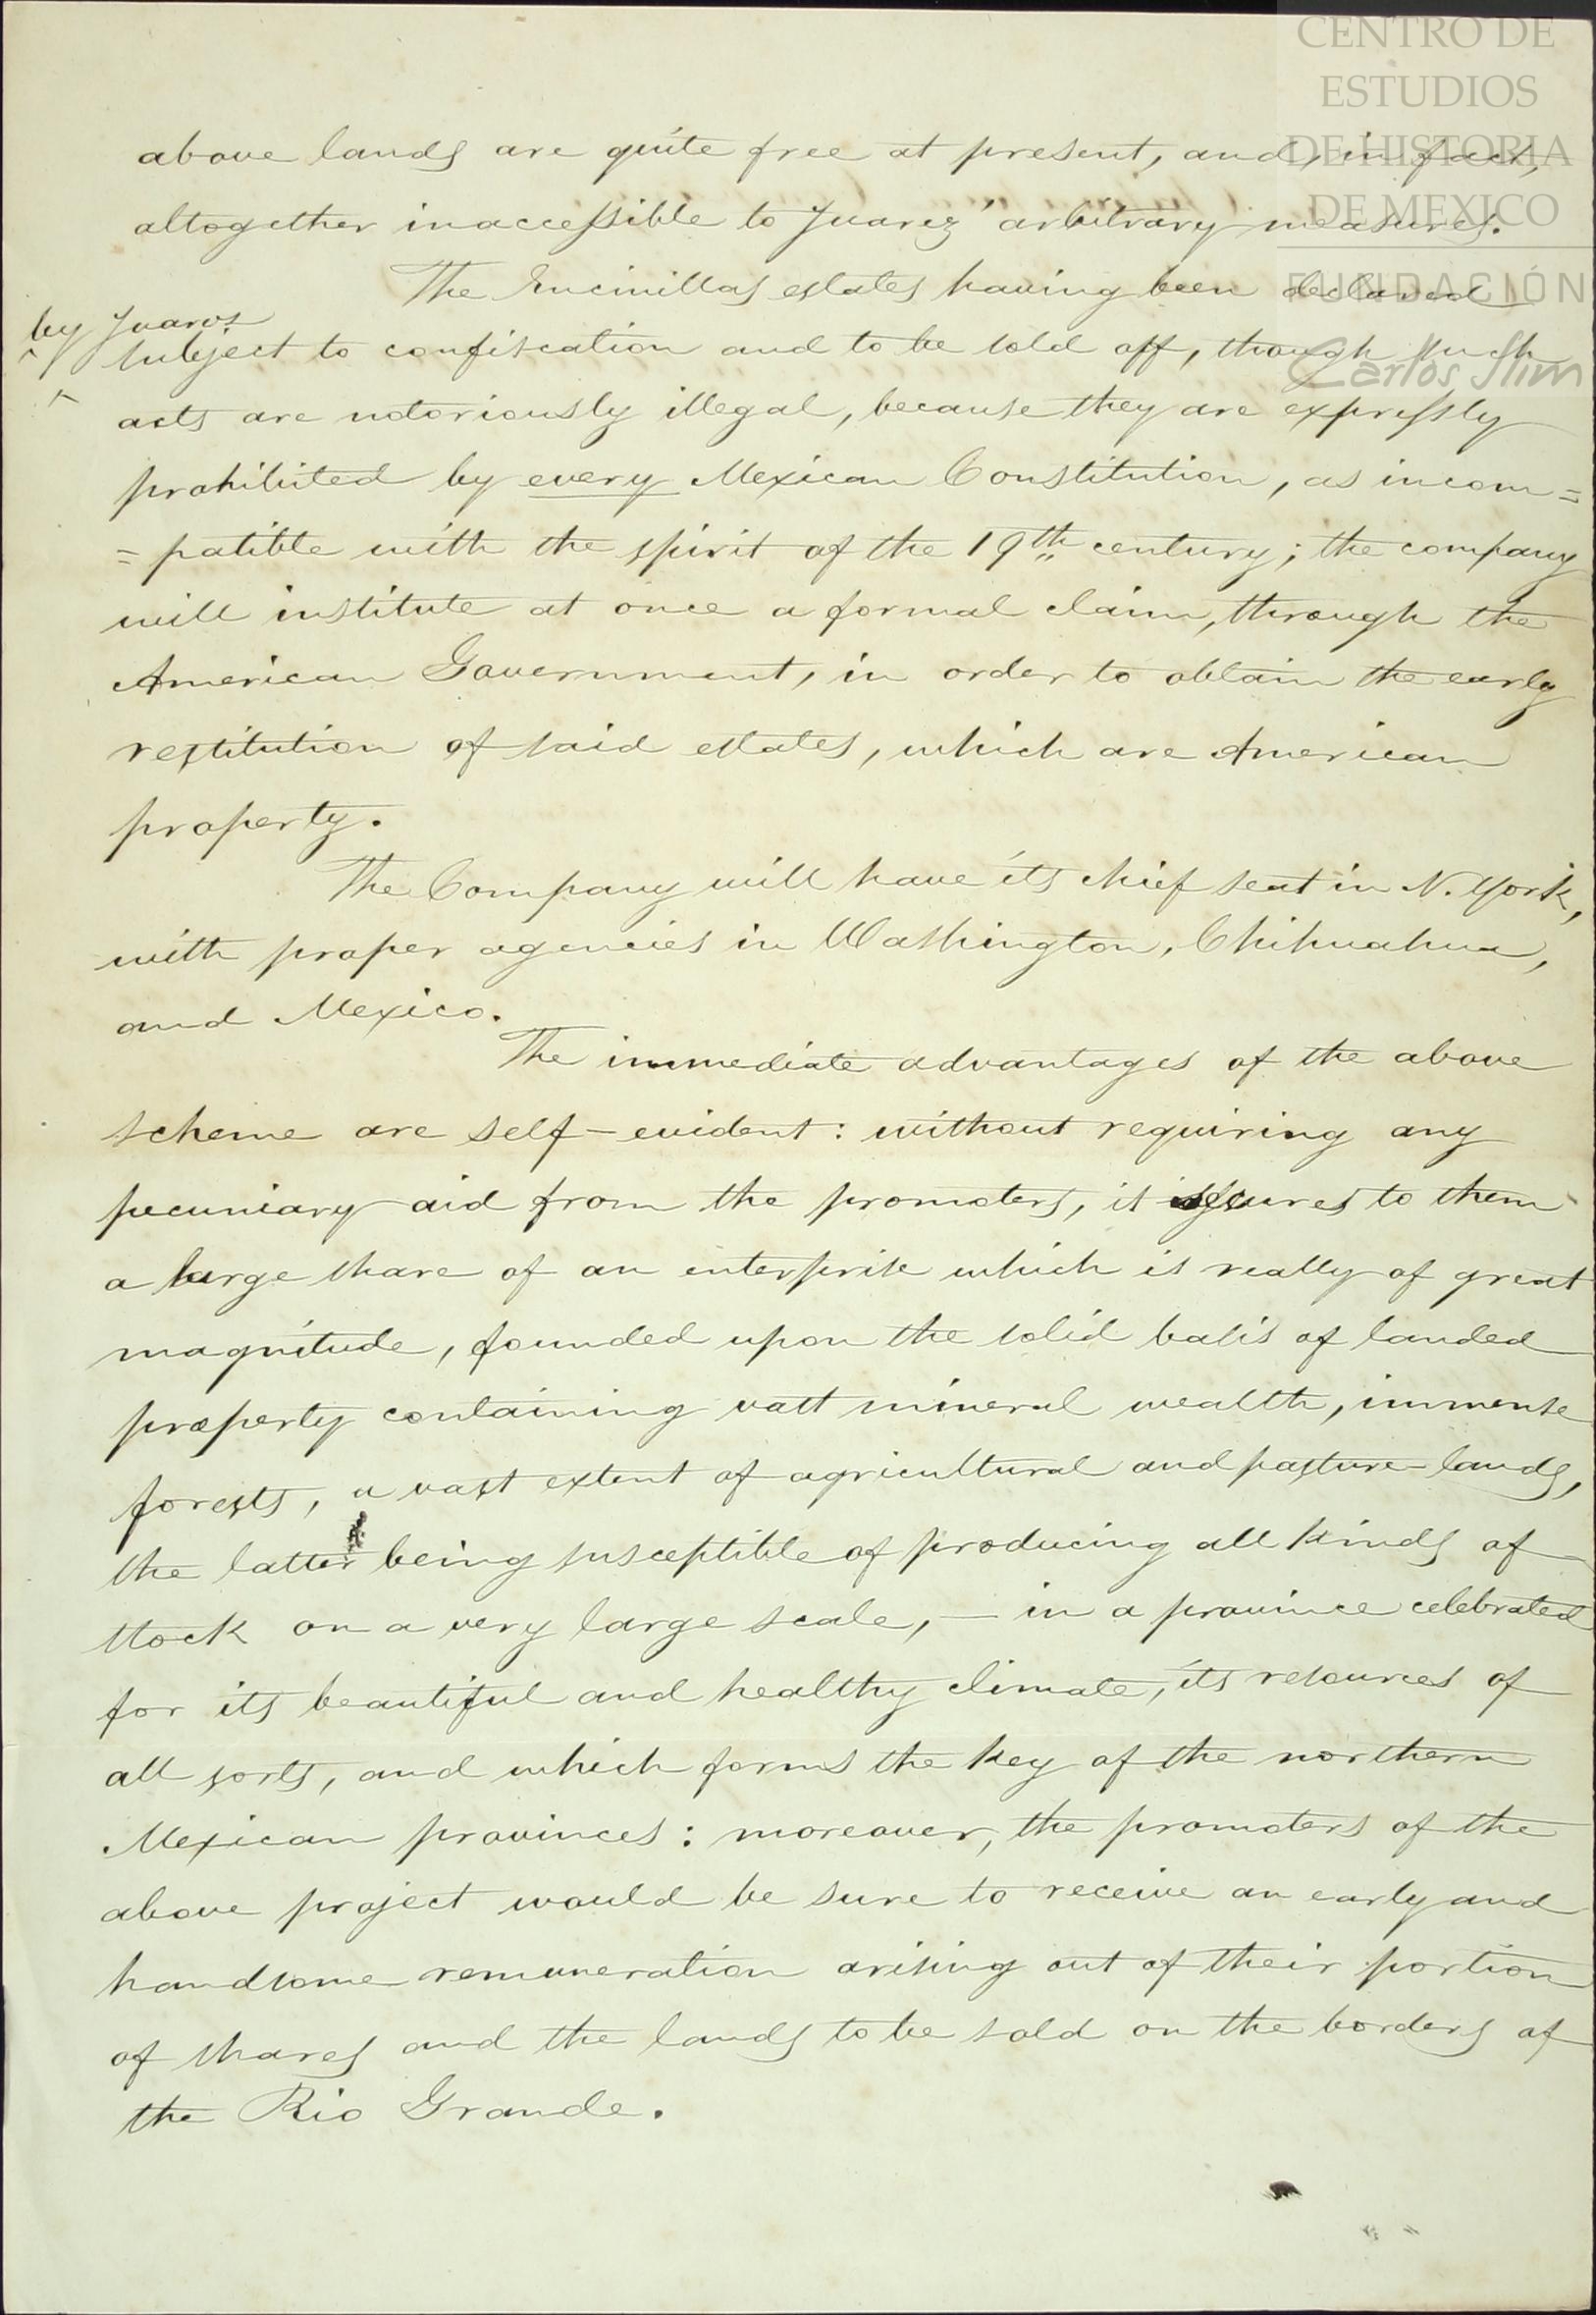 CENTRO DE
ESTUDIOS
DE HISTORIA
DE MEXICO
FUNDACIÓN
Carlos Slim
above lands are quite free at present, and, in fact,
altogether inaccessible to Juarez' arbitrary measures.
The Encinillas estates having been declared
by Juarez
subject to confiscation and to be sold off, though such
acts are notoriously illegal, because they are expressly
prohibited by every Mexican Constitution, as incom=
=patible with the spirit of the 19th century; the company
will institute at once a formal claim, through the
American Government, in order to obtain the early
restitution of said estates, which are American
property.
The Company will have its chief seat in N. York,
with proper agencies in Washington, Chihuahua,
and Mexico.
The immediate advantages of the above
scheme are self-evident: without requiring any
pecuniary aid from the promoters, it secures to them
a large share of an enterprise which is really of great
magnitude, founded upon the solid basis of landed
property containing vast mineral wealth, immense
forests, a vast extent of agricultural and pasture-lands,
the latter being susceptible of producing all kinds of
stock on a very large scale, — in a province celebrated
for its beautiful and healthy climate, its resources of
all sorts, and which forms the key of the northern
Mexican provinces: moreover, the promoters of the
above project would be sure to receive an early and
handsome remuneration arising out of their portion
of shares and the lands to be sold on the borders of
the Rio Grande.